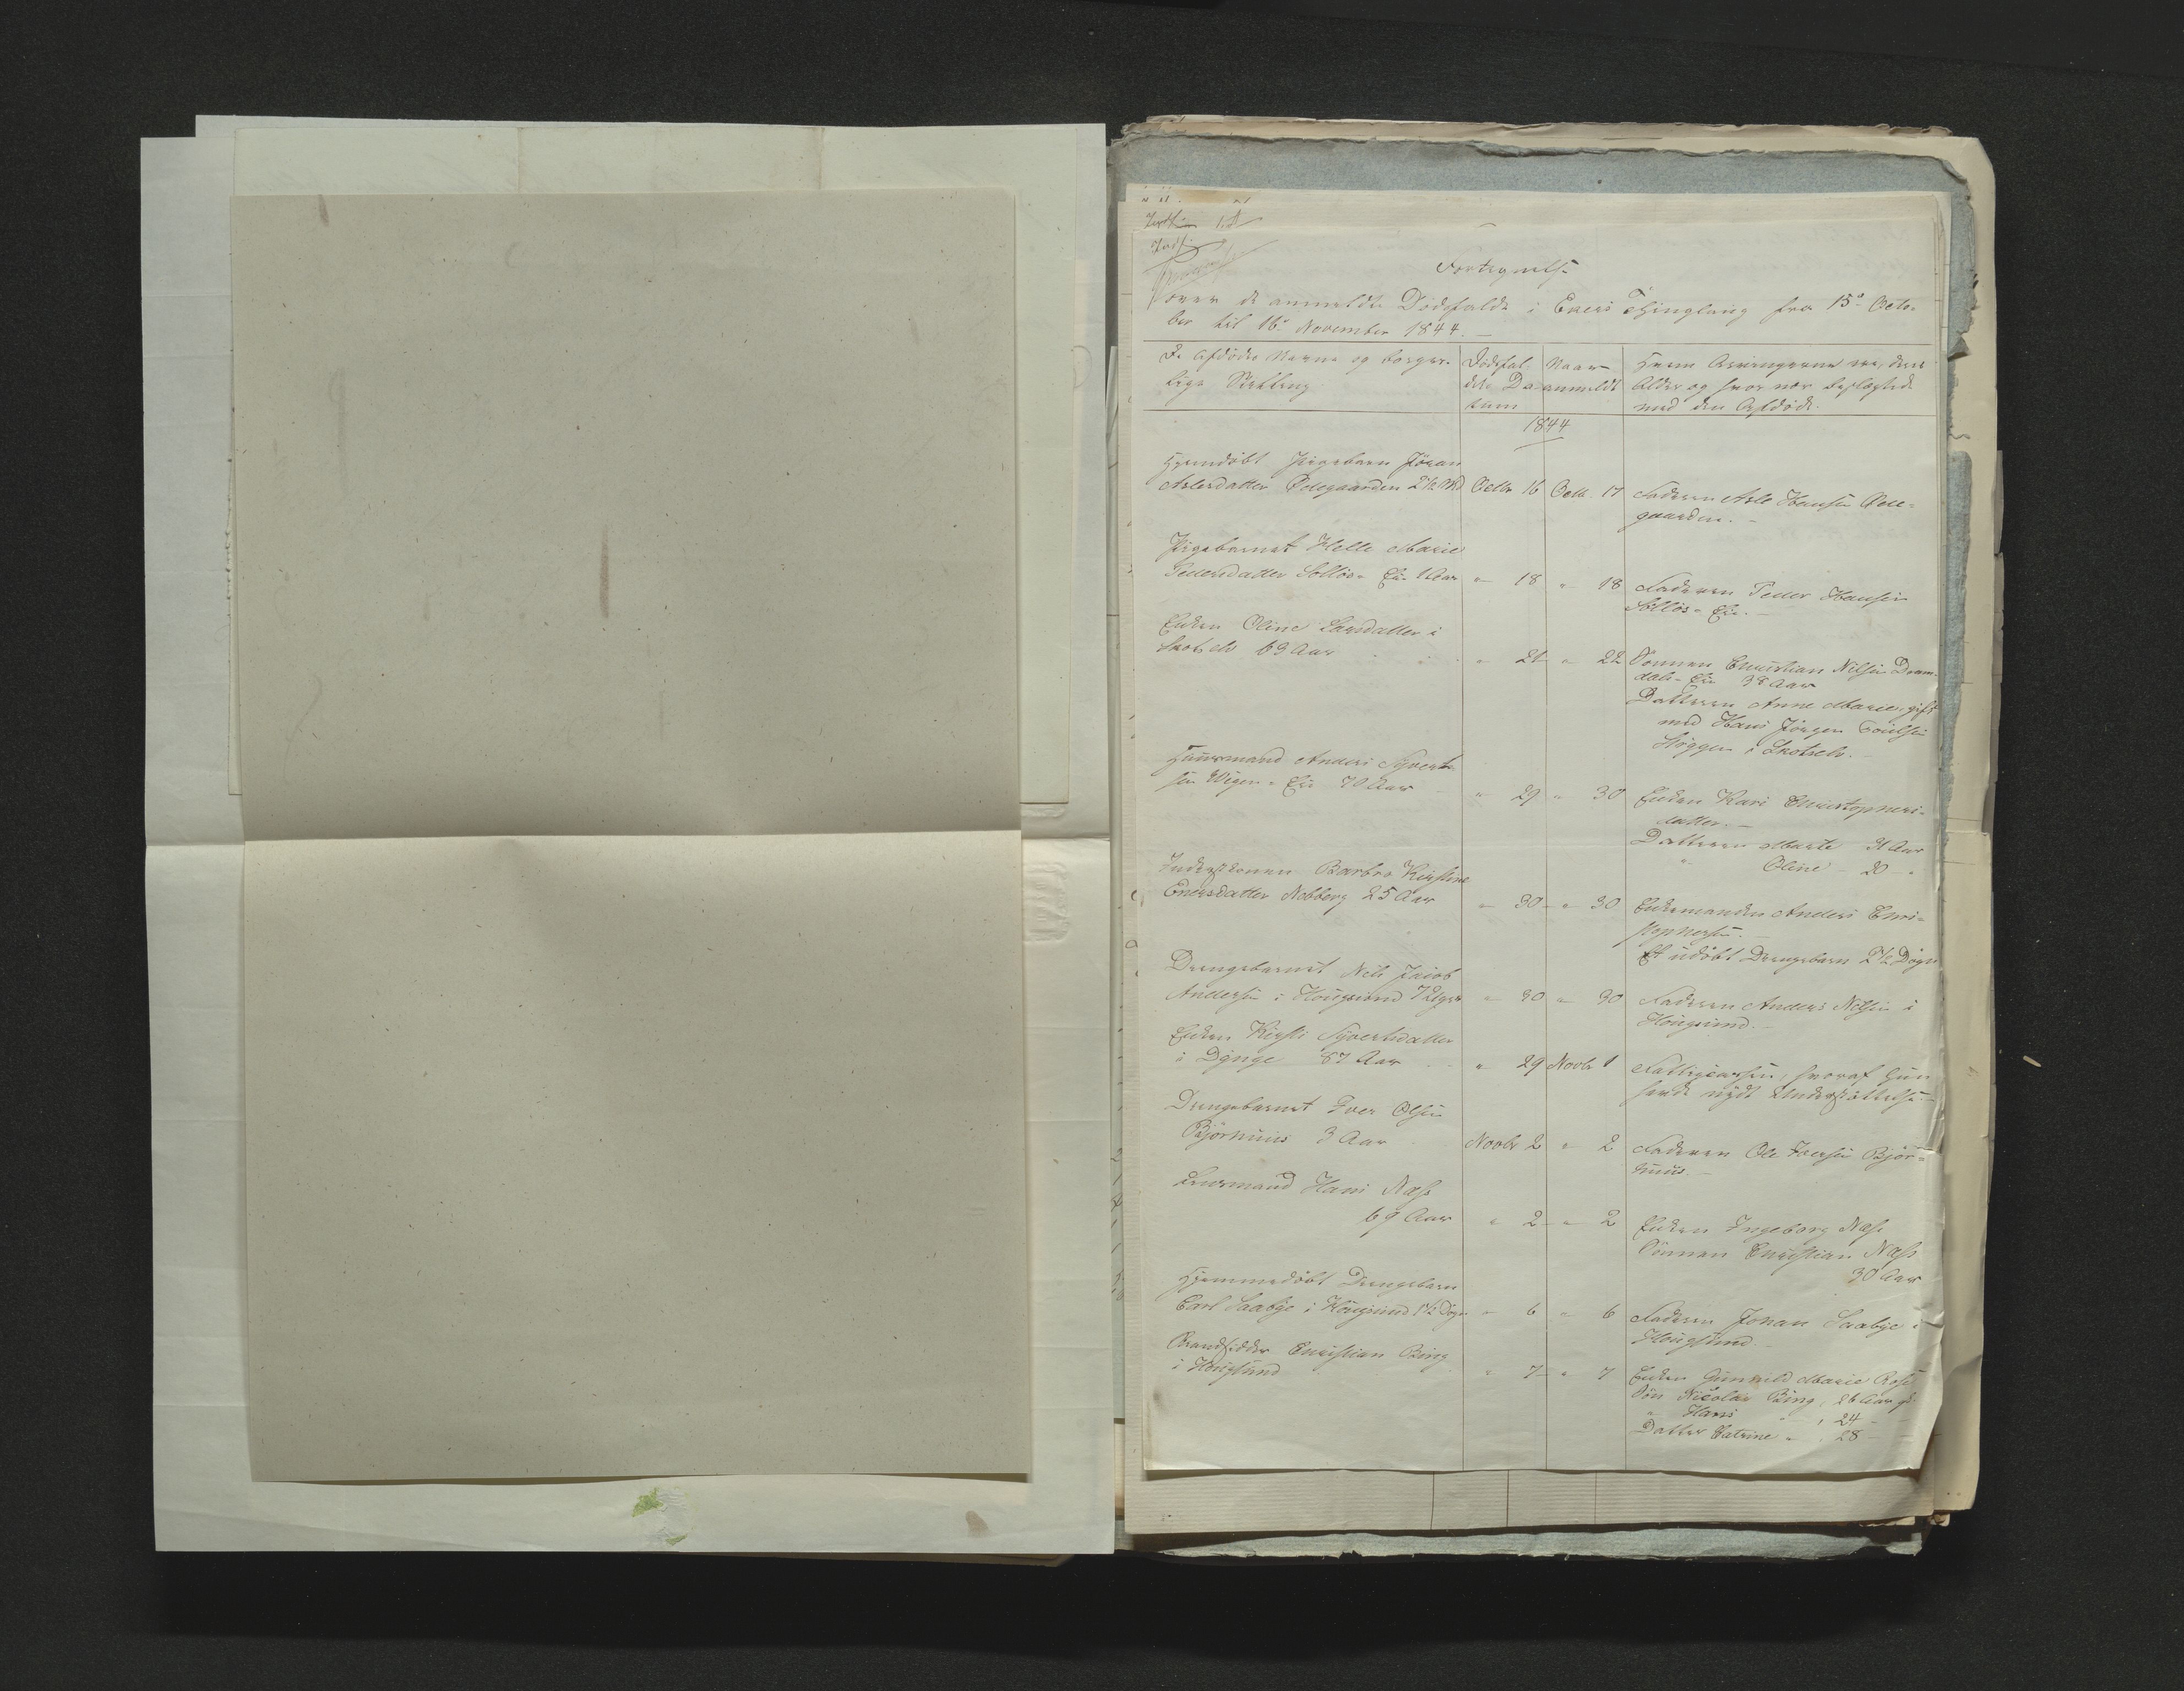 Fortegnelse
over de anmeldte Dødsfalde i Ekers Thinglaug fra 15de Octo-
ber til 16de November 1844.
De Afdødes Navne og borger-
lige Stilling
Dødsfal-
dets Da-
tum
Naar
anmeldt
Hvem Arvingerne ere, deres
Alder og hvor nær beslægtede
med den Afdøde.
1844
Hjemdøbt Pigebarn Jøran
Aslesdatter Ødegaarden 2½ Md Octbr 16 Octb. 17 Faderen Asle Hansen Øde-
gaarden.
Pigebarnet Helle Marie
Pedersdatter Solløs-Eie 1 Aar " 18 " 18 Faderen Peder Hansen
Solløs-Eie.
Enken Oline Larsdatter i
Skotselv 69 Aar " 21 " 22 Sønnen Christian Nilsen
dals-Eie 38 Aar
Datteren Anne Marie, gift
med Hans Jørgen
i Skotselv.
Huusmand Anders Syvert-
sen Wigen-Eie 70 Aar " 29 " 30 Enken Kari Christophers-
datter.
Datteren Marte 31 Aar
" Oline 20 "
Inderstkonen Barbro Kirstine
Enersdatter Nobberg 25 Aar " 30 " 30 Enkemanden Anders Chri-
stophersen.
Et udøbt Drengebarn 2½ Døgn
Drengebarnet Nils Jacob
Andersen i Hougsund 7 Uger " 30 " 30 Faderen Anders Nilsen i
Hougsund.
Enken Kirsti Syvertsdatter
i Dynge 87 Aar " 29 Novbr 1 Fattigcassen, hvoraf hun
havde nydt Understøttelse.
Drengebarnet Iver Olsen
Bjørnhuus 3 Aar Novbr 2 " 2 Faderen Ole Iversen Bjørn-
huus.
Huusmand Hans Næss
69 Aar " 2 " 2 Enken Ingeborg Næss
Sønnen Christian Næss
30 Aar
Hjemmedøbt Drengebarn
Carl Saabye i Hougsund 1½ Døgn " 6 " 6 Faderen Johan Saabye i
Hougsund.
Strandsidder Christian Bing
i Hougsund " 7 " 7 Enken Gunnild Marie Rose
Søn Nicolai Bing, 26 Aar gl.
" Hans " , 24
Datter Catrine " , 28